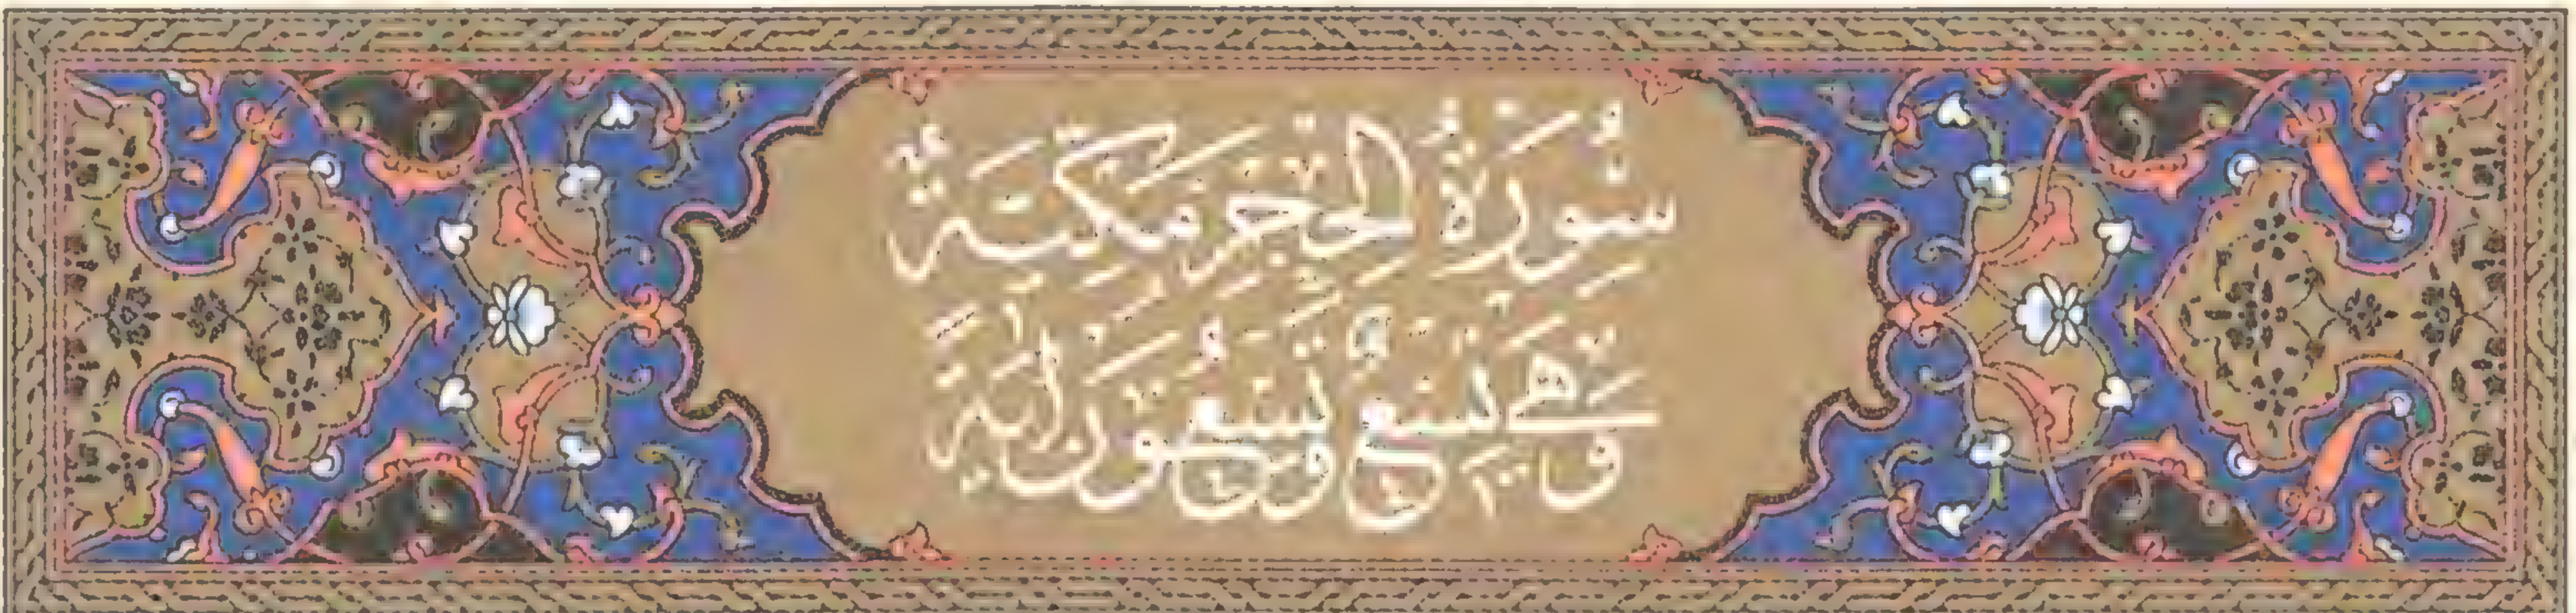 سُورَةُ الْحِجْرِ مَكِّيَّةٌ
وَهِيَ تِسْعٌ وَتِسْعُونَ اٰيَةً